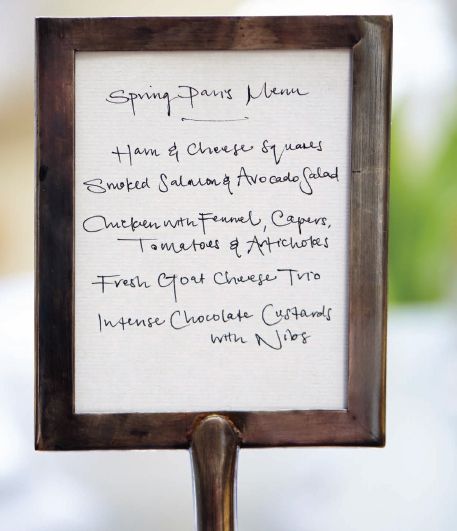 Spring Paris Menu
Ham & Cheese Squares
Smoked Salmon & Avocado Salad
Chicken with Fennel, Capers,
Tomatoes & Artichokes
Fresh Goat Cheese Trio
Intense Chocolate Custards
with Nibs